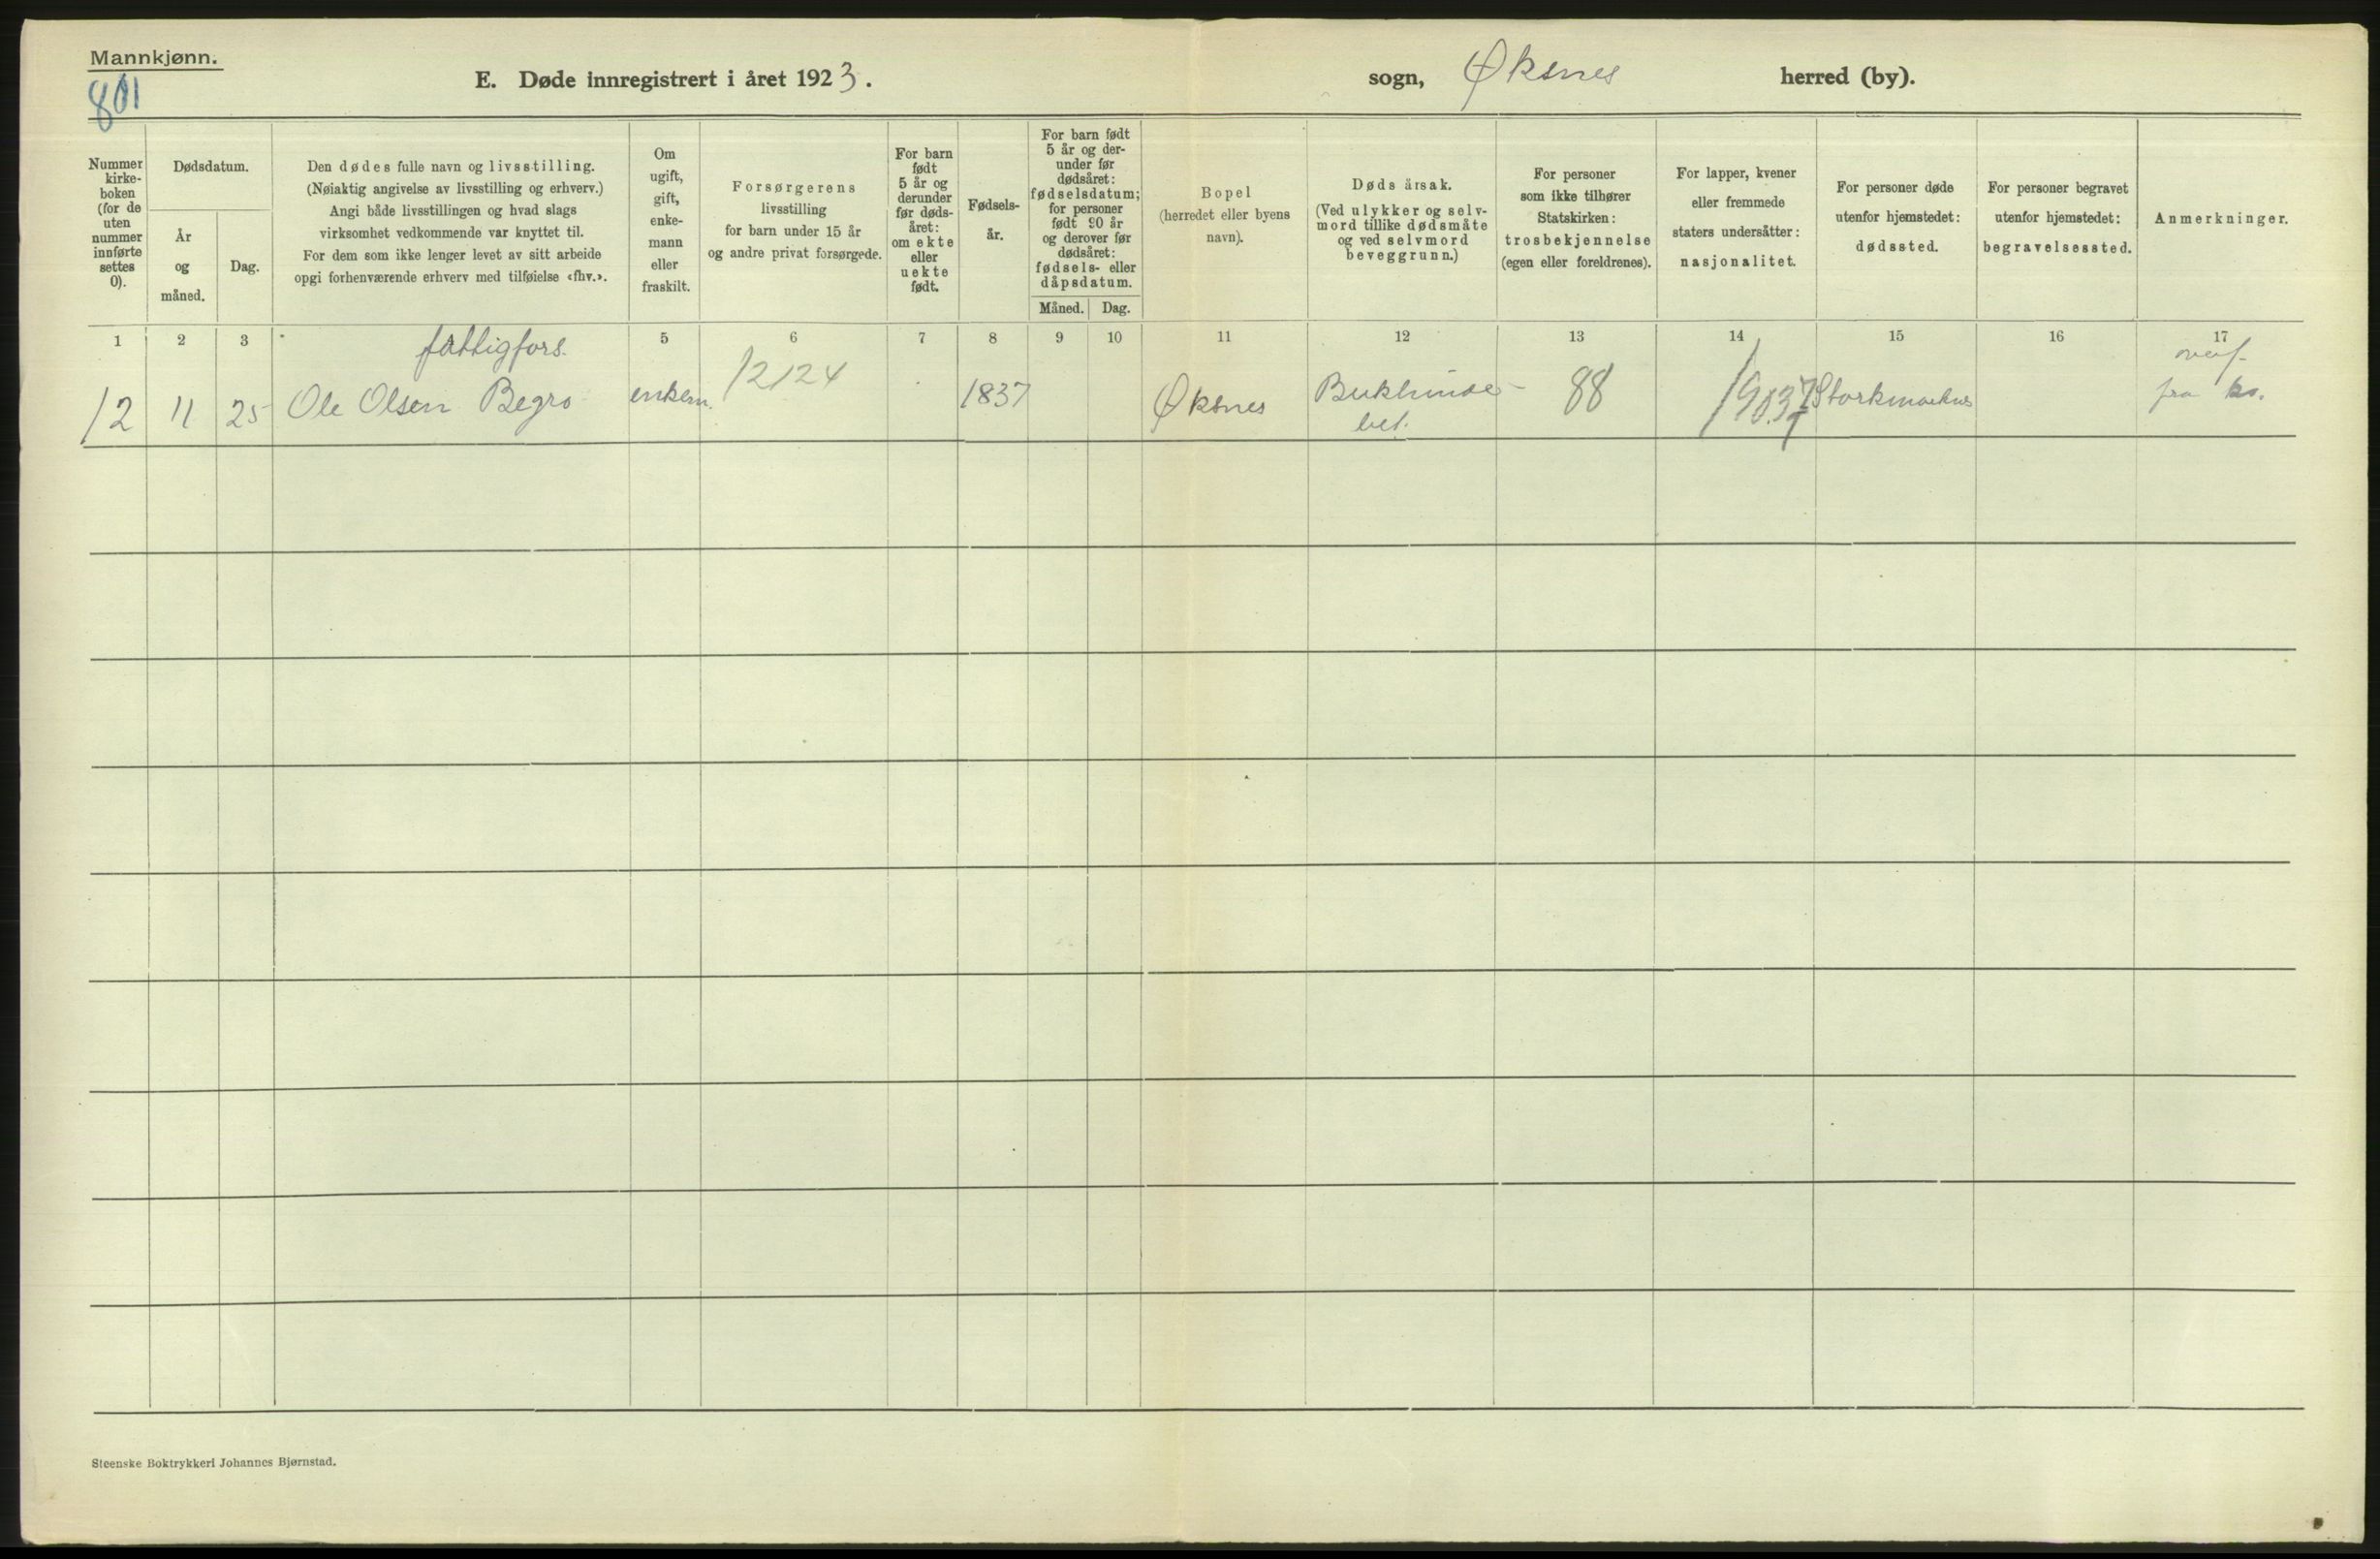 Mannkjønn.
801
E. Døde innregistrert i året 1923.
sogn, Øksnes herred (by).
Nummer
kirke-
boken
(for de
uten
nummer
innførte
settes
0).
Dødsdatum.
År
og
måned.
Dag.
Den dødes fulle navn og livsstilling.
(Nøiaktig angivelse av livsstilling og erhverv.)
Angi både livsstillingen og hvad slags
virksomhet vedkommende var knyttet til.
For dem som ikke lenger levet av sitt arbeide
opgi forhenværende erhverv med tilføielse «fhv.».
Om
ugift,
gift,
enke-
mann
eller
fraskilt.
Forsørgerens
livsstilling
for barn under 15 år
og andre privat forsørgede.
For barn
født
5 år og
derunder
før døds-
året:
om ekte
eller
uekte
født.
Fødsels-
år.
For barn født
5 år og der-
under før
dødsåret:
fødselsdatum;
for personer
født 90 år
og derover før
dødsåret:
fødsels- eller
dåpsdatum.
Måned. Dag.
Bopel
(herredet eller byens
navn).
Dødsårsak.
(Ved ulykker og selv-
mord tillike dødsmåte
og ved selvmord
beveggrunn.)
For personer
som ikke tilhører
Statskirken:
trosbekjennelse
(egen eller foreldrenes).
For lapper, kvener
eller fremmede
staters undersåtter:
nasjonalitet.
For personer døde
utenfor hjemstedet:
dødssted.
For personer begravet
utenfor hjemstedet:
begravelsessted.
Anmerkninger.
1 2 3 5 6 7 8 9 10 11 12 13 14 15 16 17
fattigfors.
12 11 25 Ole Olsen Begro enkem. 12124 1837 Øksnes 88 Storkmarknes
fra
bet.
Steenske Boktrykkeri Johannes Bjørnstad.